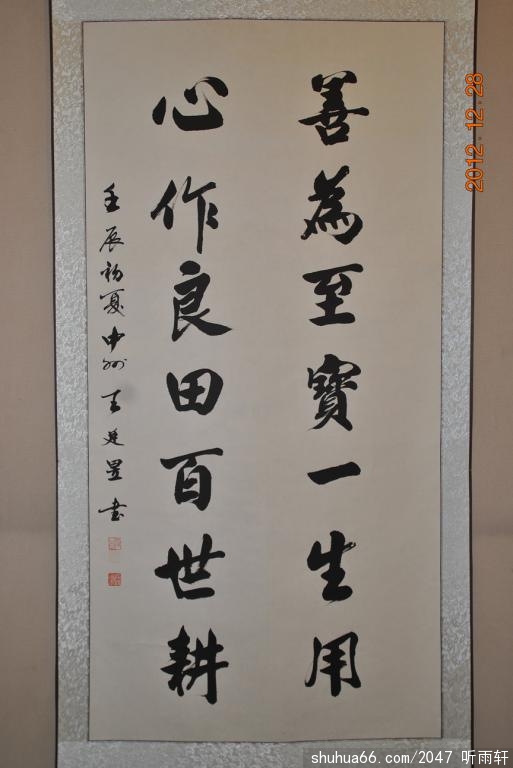 善為至寶一生用
心作良田百世耕
壬辰初夏中州王廷昱書
2012.12.28
shuhua66.com/2047 听雨轩